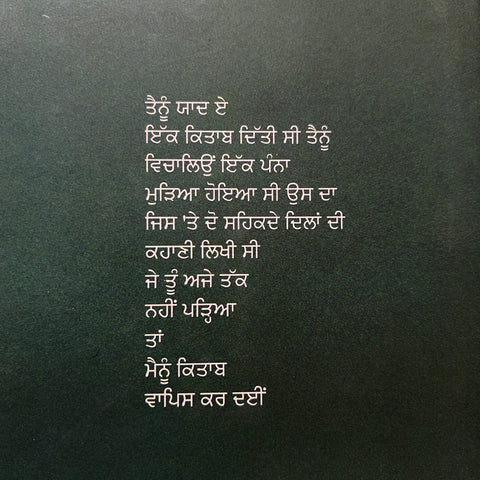 ਤੈਨੂੰ ਯਾਦ ਏ
ਇੱਕ ਕਿਤਾਬ ਦਿੱਤੀ ਸੀ ਤੈਨੂੰ
ਵਿਚਾਲਿਉਂ ਇੱਕ ਪੰਨਾ
ਮੁੜਿਆ ਹੋਇਆ ਸੀ ਉਸ ਦਾ
ਜਿਸ 'ਤੇ ਦੋ ਸਹਿਕਦੇ ਦਿਲਾਂ ਦੀ
ਕਹਾਣੀ ਲਿਖੀ ਸੀ
ਜੇ ਤੂੰ ਅਜੇ ਤੱਕ
ਨਹੀਂ ਪੜ੍ਹਿਆ
ਤਾਂ
ਮੈਨੂੰ ਕਿਤਾਬ
ਵਾਪਿਸ ਕਰ ਦਈਂ